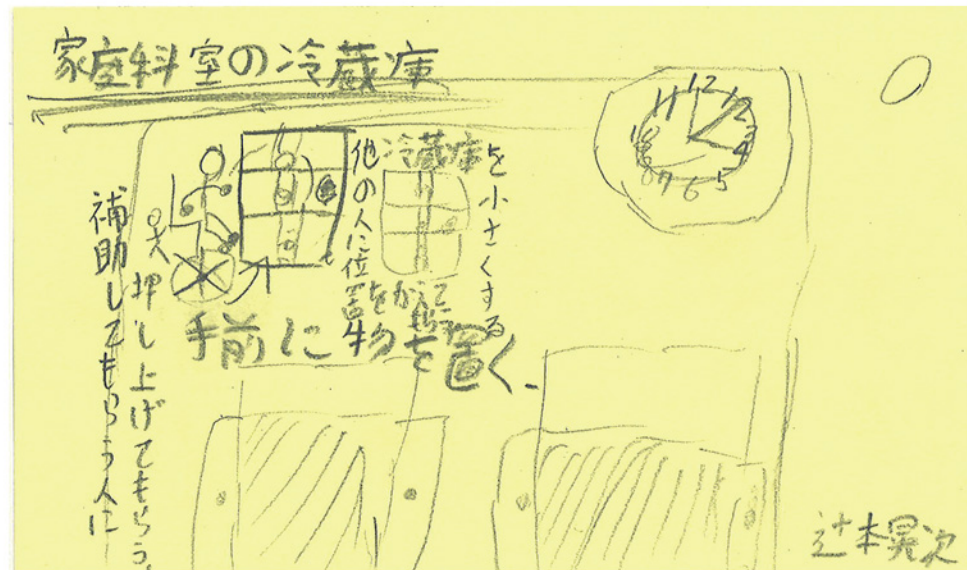 家庭科室の冷蔵庫
12
11 1
2
3
4
5
6
7
8
9
10
冷蔵庫
を小さくする
他の人に位置をかえて
手前に物を置く、
押し上げてもらう。
補助してもらう人に
辻本晃次